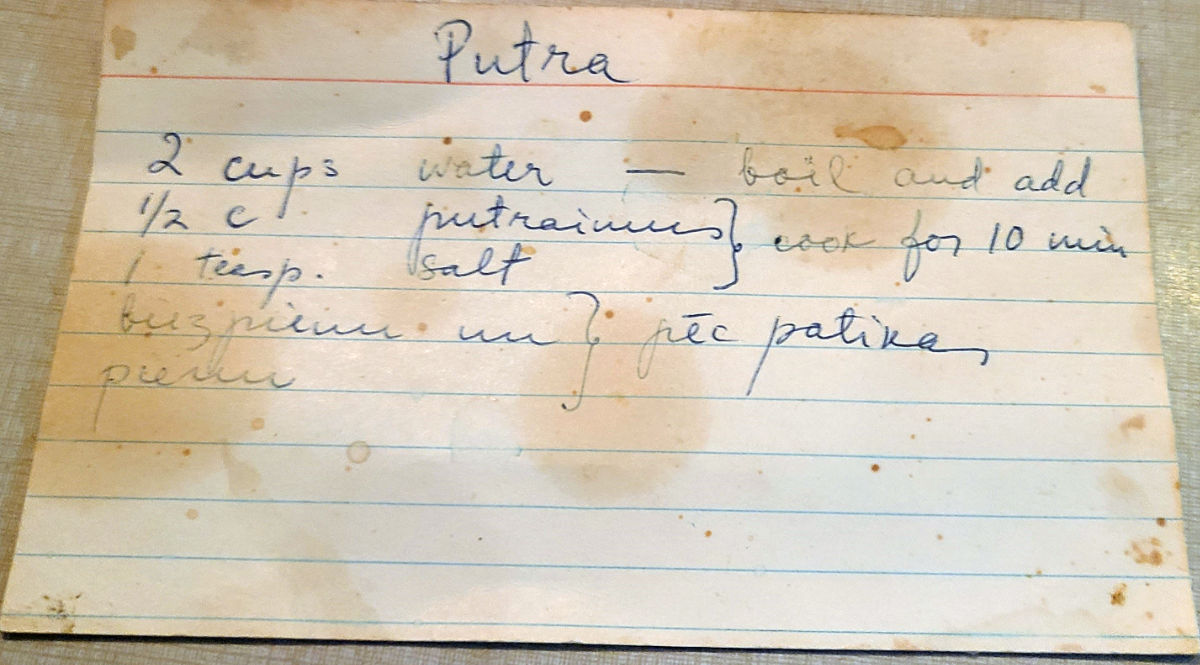 Putra
2 cups water — boil and add
1/2 c putraimus } cook for 10 min
1 teasp. salt
biezpienu un } pēc patikas
pienu